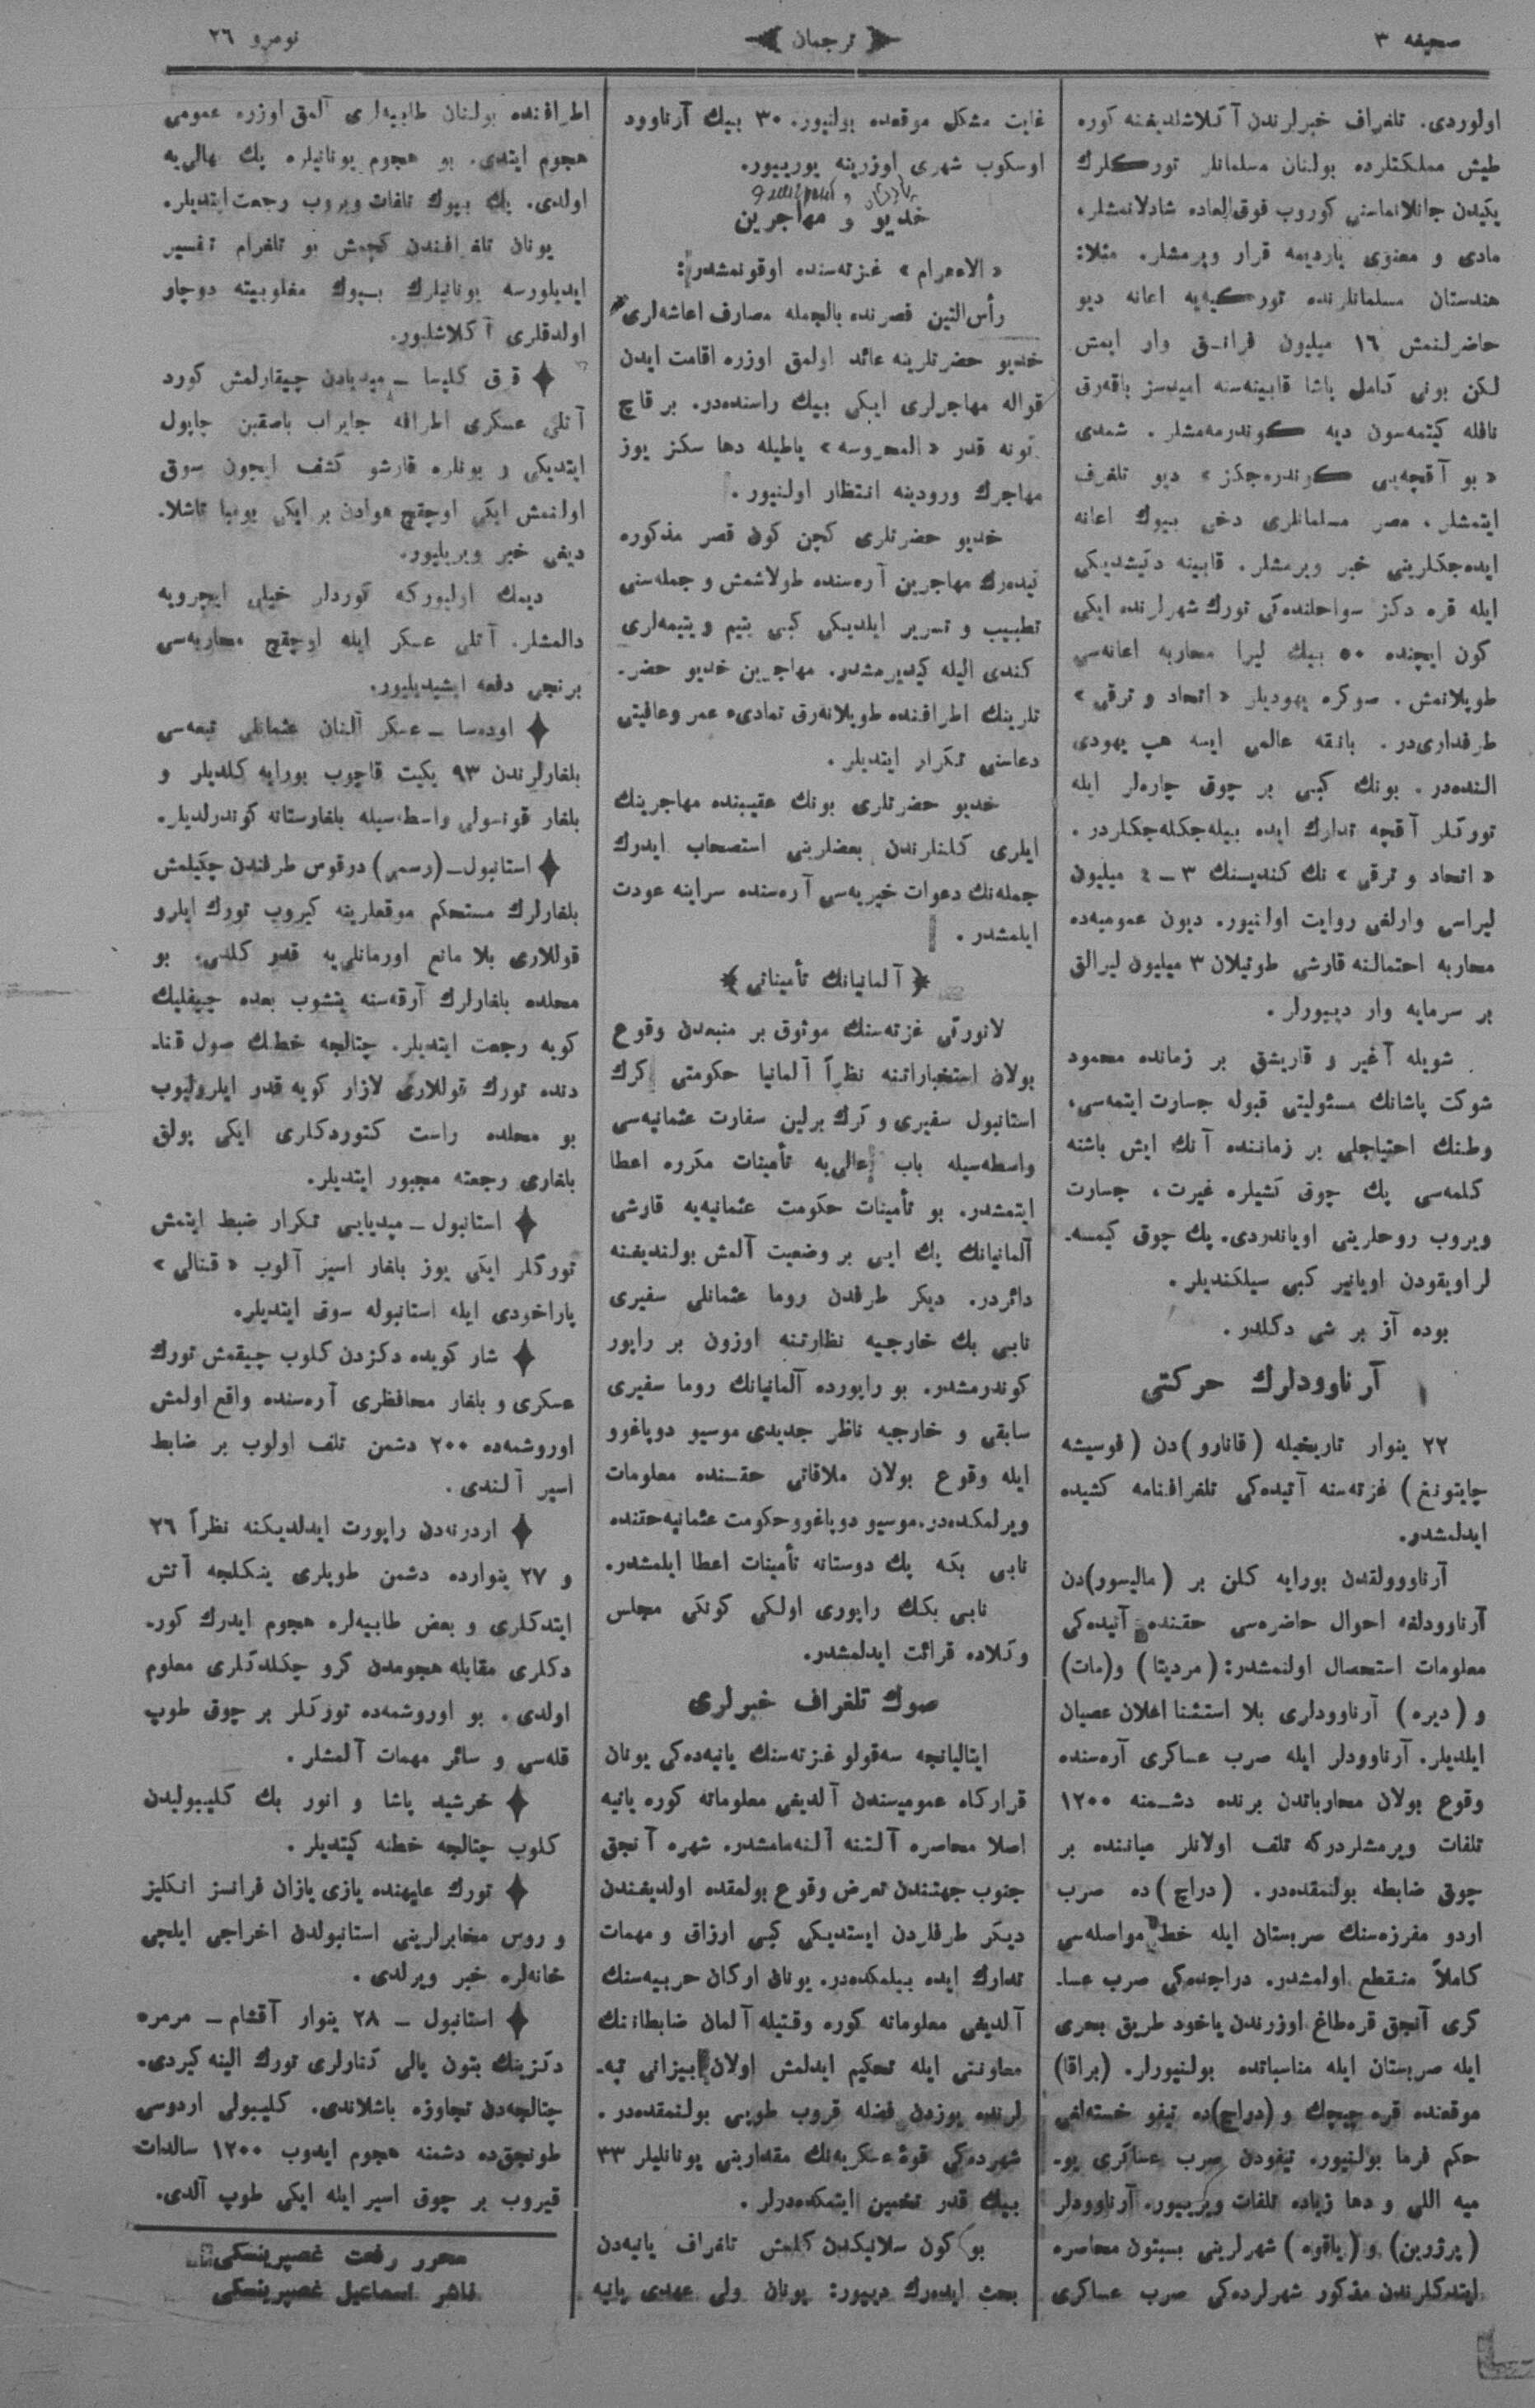 صحیفه ٣
ترجمان
نومرو ٢٦
اولوردی. تلغراف خبرلرندن آڭلاشلدیغنه كوره
طیش مملكتلرده بولنان مسلمانلر توركلرك
یكیدن جانلانماسنی كوروب فوق‌العاده شادلانمشلر،
مادی و معنوی یاردیمه قرار ویرمشلر. مثلا:
هندستان مسلمانلرنده توركیه‌یه اعانه دیو
حاضرلنمش ١٦ میلیون فرانق وار ایمش
لكن بونی كامل پاشا قابینه‌سنه امیدسز باقه‌رق
نافله كیتمه‌سون دیه كوندرمه‌مشلر. شمدی
«بو آقچه‌یی كوندره‌جكز» دیو تلغرف
ایتمشلر، مصر مسلمانلری دخی بیوك اعانه
ایده‌جكلرینی خبر ویرمشلر. قابینه دكیشدیكی
ایله قره دكز سواحلنده‌كی تورك شهرلرنده ایكی
كون ایچنده ٥٠ بیك لیرا محاربه اعانه‌سی
طوپلانمش. صوكره یهودیلر «اتحاد و ترقی»
طرفداری‌در. بانقه عالمی ایسه هپ یهودی
النده‌در. بونك كبی بر چوق چاره‌لر ایله
توركلر آقچه تدارك ایده بیله‌جكله‌جكلردر.
«اتحاد و ترقی» نك كندیسنك ٣ – ٤ میلیون
لیراسی وارلغی روایت اولنیور. دیون عمومیه‌ده
محاربه احتمالنه قارشی طوتیلان ٣ میلیون لیرالق
بر سرمایه وار دییورلر.
شویله آغیر و قاریشق بر زمانده محمود
شوكت پاشانك مسئولیتی قبوله جسارت ایتمه‌سی،
وطنك احتیاجلی بر زماننده آنك ایش باشنه
كلمه‌سی پك چوق كشیلره غیرت، جسارت
ویروب روحلرینی اویاندردی. پك چوق كیمسه‌ـ
لر اویقودن اویانیر كبی سیلكندیلر.
بوده آز بر شی دكلدر.
آرناوودلرك حركتی
٢٢ ینوار تاریخیله (قاتارو) دن (فوسیشه
چایتونغ) غزته‌سنه آتیده‌كی تلغرافنامه كشیده
ایدلمشدر.
آرناووولقدن بورایه كلن بر (مالیسور) دن
آرناوودلغه احوال حاضره‌سی حقنده آتیده‌كی
معلومات استحصال اولنمشدر: (مردیتا) و (مات)
و (دیره) آرناوودلری بلا استثنا اعلان عصیان
ایلدیلر. آرناوودلر ایله صرب عساكری آره‌سنده
وقوع بولان محارباتدن برنده دشمنه ١٢٠٠
تلفات ویرمشلردركه تلف اولانلر میاننده بر
چوق ضابطه بولنمقده‌در. (دراچ) ده صرب
اردو مفرزه‌سنك صربستان ایله خط مواصله‌سی
كاملاً منقطع اولمشدر. دراچده‌كی صرب عساـ
كری آنجق قره‌طاغ اوزرندن یاخود طریق بحری
ایله صربستان ایله مناسباتده بولنیورلر. (براقا)
موقعنده قره چیچك و (دراچ) ده تیفو خسته‌لغی
حكم فرما بولنیور. تیفودن صرب عساكری یوـ
میه اللی و دها زیاده تلفات ویرییور. آرناوودلر
(پرزرین) و (یاقوه) شهرلرینی بسبتون محاصره
ایتدكلرندن مذكور شهرلرده‌كی صرب عساكری
غایت مشكل موقعده بولنیور. ٣٠ بیك آرناوود
اوسكوب شهری اوزرینه یورییور.
خدیو و مهاجرین
«الاهرام» غزته‌سنده اوقونمشدر:
رأس‌التین قصرنده بالجمله مصارف اعاشه‌لری
خدیو حضرتلرینه عائد اولمق اوزره اقامت ایدن
قواله مهاجرلری ایكی بیك راسنده‌در. بر قاچ
كونه قدر «المحروسه» یاطیله دها سكز یوز
مهاجرك ورودینه انتظار اولنیور.
خدیو حضرتلری كچن كون قصر مذكوره
كیده‌رك مهاجرین آره‌سنده طولاشمش و جمله‌سنی
تطبیب و تسریر ایلدیكی كبی یتیم و یتیمه‌لری
كندی الیله كیدیرمشدر. مهاجرین خدیو حضرـ
تلرینك اطرافنده طوپلانه‌رق تمادیء عمر وعافیتی
دعاسنی تكرار ایتدیلر.
خدیو حضرتلری بونك عقیبنده مهاجرینك
ایلری كلنلرندن بعضلرینی استصحاب ایدرك
جمله‌نك دعوات خیریه‌سی آره‌سنده سراینه عودت
ایلمشدر.
﴿آلمانیانك تأمیناتی﴾
لاتورتی غزته‌سنك موثوق بر منبعدن وقوع
بولان استخباراتنه نظراً آلمانیا حكومتی كرك
استانبول سفیری و كرك برلین سفارت عثمانیه‌سی
واسطه‌سیله باب عالی‌یه تأمینات مكرره اعطا
ایتمشدر. بو تأمینات حكومت عثمانیه‌یه قارشی
آلمانیانك پك ایی بر وضعیت آلمش بولندیغنه
دائردر. دیكر طرفدن روما عثمانلی سفیری
نابی بك خارجیه نظارتنه اوزون بر راپور
كوندرمشدر. بو راپورده آلمانیانك روما سفیری
سابقی و خارجیه ناظر جدیدی موسیو دویاغوو
ایله وقوع بولان ملاقاتی حقنده معلومات
ویرلمكده‌در. موسیو دویاغوو حكومت عثمانیه حقنده
نابی بكه پك دوستانه تأمینات اعطا ایلمشدر.
نابی بكك راپوری اولكی كونكی مجلس
وكلاده قرائت ایدلمشدر.
صوك تلغراف خبرلری
ایتالیانجه سه‌قولو غزته‌سنك یانیه‌ده‌كی یونان
قراركاه عمومیسندن آلدیغی معلوماته كوره یانیه
اصلا محاصره آلتنه آلنه‌مامشدر. شهره آنجق
جنوب جهتندن تعرض وقوع بولمقده اولدیغندن
دیكر طرفلردن ایستدیكی كبی ارزاق و مهمات
تدارك ایده بیلمكده‌در. یونان اركان حربیه‌سنك
آلدیغی معلوماته كوره وقتیله آلمان ضابطاننك
معاونتی ایله تحكیم ایدلمش اولان بیزانی تپه‌ـ
لرنده یوزدن فضله قروپ طوپی بولنمقده‌در.
شهرده‌كی قوۀ عسكریه‌نك مقدارینی یونانلیلر ٣٣
بیك قدر تخمین ایتمكده‌درلر.
بو كون سلانیكدن كلمش تلغراف یانیه‌دن
بحث ایده‌رك دییور: یونان ولی عهدی یانیه
اطرافنده بولنان طابیه‌لری آلمق اوزره عمومی
هجوم ایتدی. بو هجوم یونانیلره پك بهالی‌یه
اولدی. پك بیوك تلفات ویروب رجعت ایتدیلر.
یونان تلغرافندن كچمش بو تلغرام تفسیر
ایدیلورسه یونانیلرك بیوك مغلوبیته دوچار
اولدقلری آڭلاشلیور.
✦ قرق كلیسا – میدیادن چیقارلمش كورد
آتلی عسكری اطرافه چایراب باصقین چاپول
ایتدیكی و بونلره قارشو كشف ایچون سوق
اولنمش ایكی اوچقچ هوادن بر ایكی بومبا تاشلاـ
دیغی خبر ویریلیور.
دیمك اولیوركه كوردلر خیلی ایچرویه
دالمشلر. آتلی عسكر ایله اوچقچ محاربه‌سی
برنجی دفعه ایشیدیلیور.
✦ اوده‌سا – عسكر آلنان عثمانلی تبعه‌سی
بلغارلرندن ٩٣ یكیت قاچوب بورایه كلدیلر و
بلغار قونسولی واسطه‌سیله بلغارستانه كوندرلدیلر.
✦ استانبول – (رسمی) درقوس طرفندن چكیلمش
بلغارلرك مستحكم موقعلرینه كیروب تورك ایلرو
قوللاری بلا مانع اورمانلی‌یه قدر كلدی، بو
محلده بلغارلرك آرقه‌سنه یتشوب بعده چیفلیك
كویه رجعت ایتدیلر. چتالجه خطنك صول قناـ
دنده تورك قوللاری لازار كویه قدر ایلرولیوب
بو محلده راست كتوردكلری ایكی بولق
بلغاری رجعته مجبور ایتدیلر.
✦ استانبول – میدیایی تكرار ضبط ایتمش
توركلر ایكی یوز بلغار اسیر آلوب «قنالی»
پاراخودی ایله استانبوله سوق ایتدیلر.
✦ شار كویده دكزدن كلوب چیقمش تورك
عسكری و بلغار محافظری آره‌سنده واقع اولمش
اوروشمه‌ده ٢٠٠ دشمن تلف اولوب بر ضابط
اسیر آلندی.
✦ اردرنه‌دن راپورت ایدلدیكنه نظراً ٢٦
و ٢٧ ینوارده دشمن طوپلری ینكلجه آتش
ایتدكلری و بعض طابیه‌لره هجوم ایدرك كورـ
دكلری مقابله هجومدن كرو چكلدكلری معلوم
اولدی. بو اوروشمه‌ده توركلر بر چوق طوپ
قله‌سی و سائر مهمات آلمشلر.
✦ خرشید پاشا و انور بك كلیبولیدن
كلوب چتالجه خطنه كیتدیلر.
✦ تورك علیهنده یازی یازان فرانسز انكلیز
و روس مخابرلرینی استانبولدن اخراجی ایلچی
خانه‌لره خبر ویرلدی.
✦ استانبول – ٢٨ ینوار آقشام – مرمره
دكزینك بتون یالی كنارلری تورك الینه كیردی.
چتالجه‌دن تجاوزه باشلاندی. كلیبولی اردوسی
طونجق‌ده دشمنه هجوم ایدوب ١٢٠٠ سالدات
قیروب بر چوق اسیر ایله ایكی طوپ آلدی.
محرر رفعت غصپرینسكی
ناشر اسماعیل غصپرینسكی